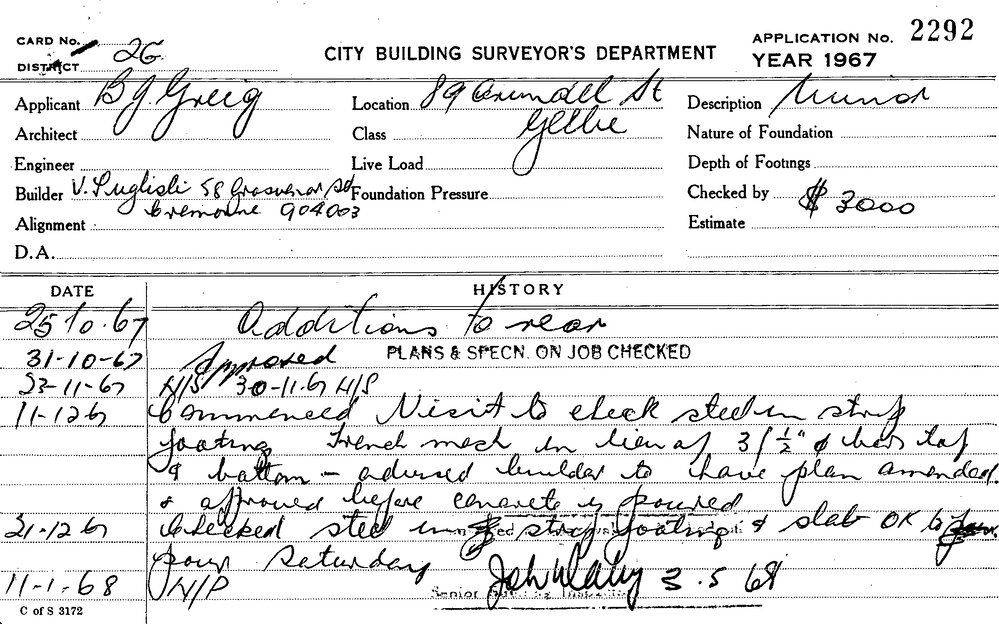 CARD No. 2G
DISTRICT
CITY BUILDING SURVEYOR'S DEPARTMENT
APPLICATION No. 2292
YEAR 1967
Applicant B J. Greig
Location 89 Arundel St
Glebe
Description Minor
Architect
Class
Nature of Foundation
Engineer
Live Load
Depth of Footings
Builder V. Puglisi 58 Grosvenor Rd
Cremorne 904003
Foundation Pressure
Checked by
$ 3000
Alignment
Estimate
D.A.
DATE HISTORY
25 10.67 Additions to rear
31-10-67 Approved PLANS & SPECN. ON JOB CHECKED
23-11-67 N/S 30-11.67 N/S
11-12 67 Commenced Visit to check steel in strip
footing Trench mesh in lieu of 3/½" φ bars top
& bottom - advised builder to have plan amended
& approved before concrete is poured
21-12 67 Checked steel in strip footing & slab OK to
pour Saturday
11-1-68 N/P 3.5 68
Senior Building Inspector
C of S 3172